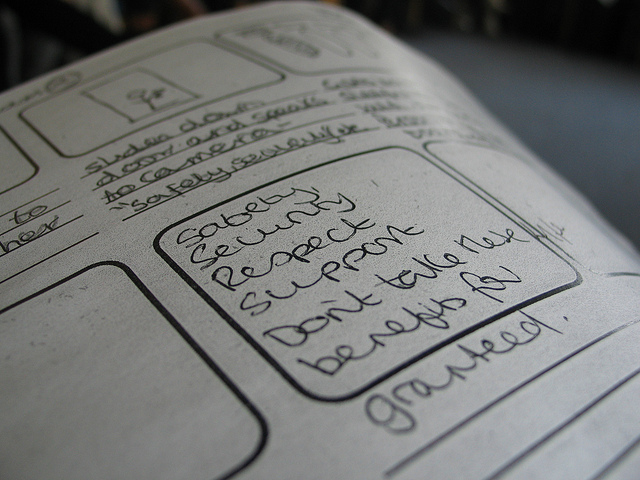 slides down
door and speaks
to camera-
"Safety security
to
her
Safety,
Security
Respect
Support
Don't take these
benefits for
granted.